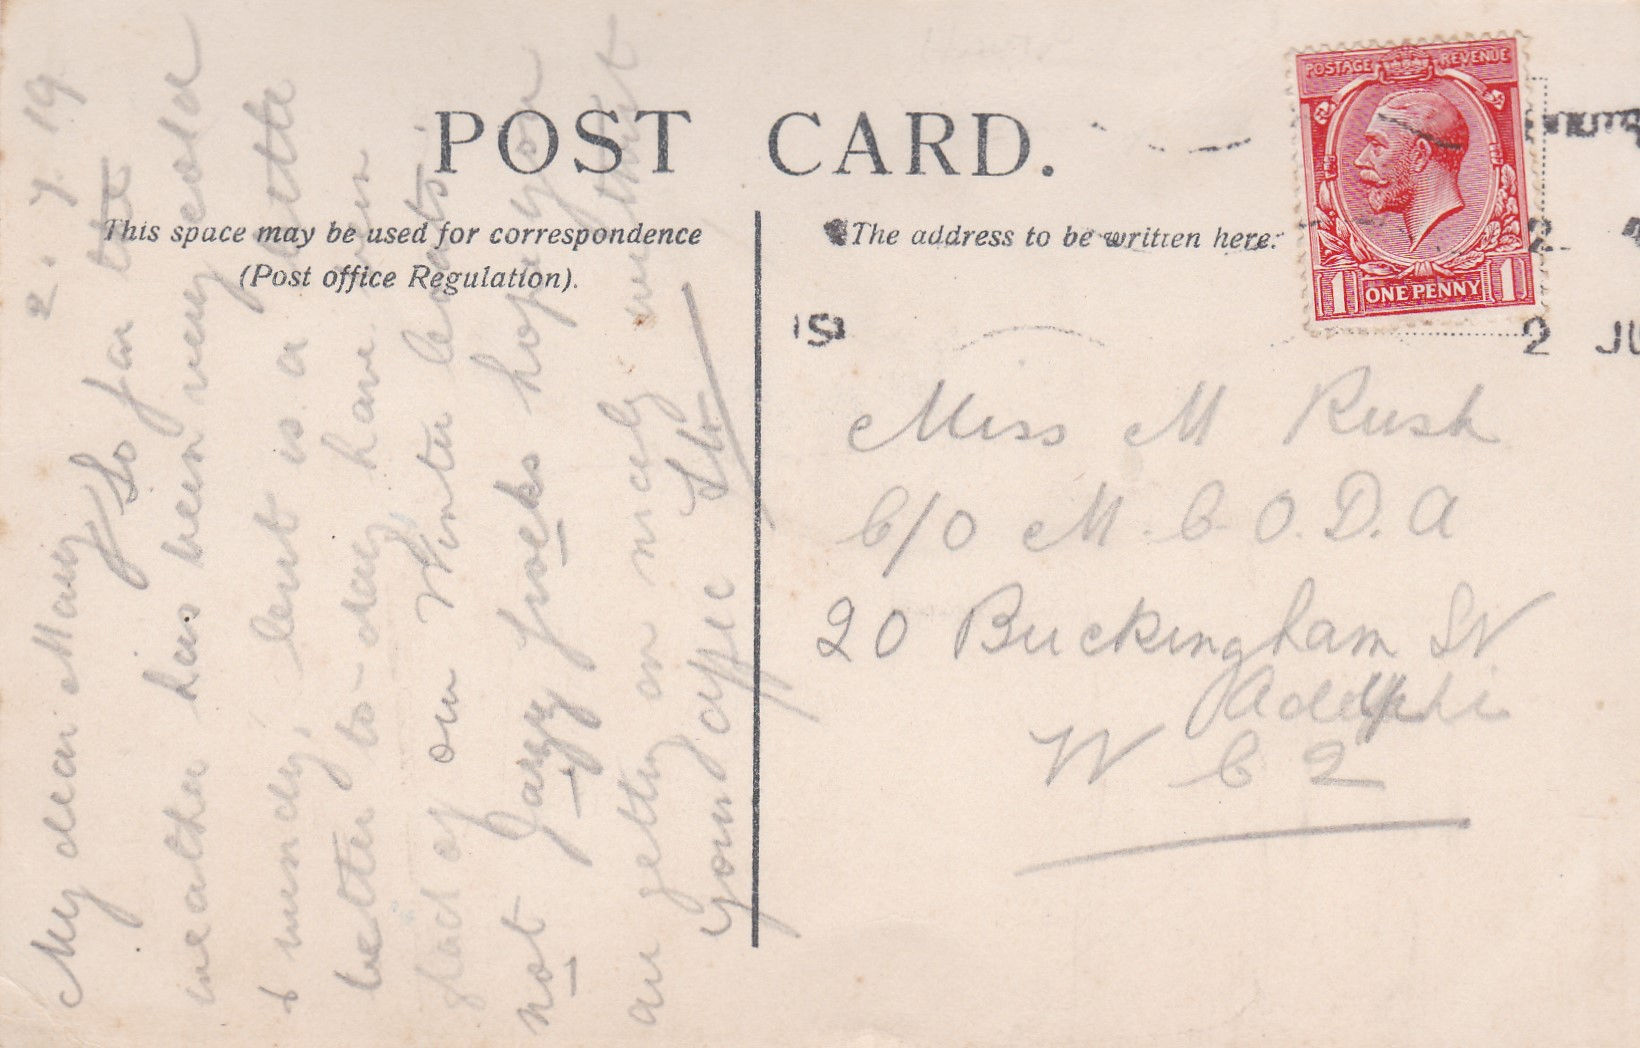 POST CARD.
This space may be used for correspondence
(Post office Regulation).
The address to be written here.
POSTAGE REVENUE
1 ONE PENNY 1
2 JU
2. 7. 19
My dear Mary
So far the
weather has been very cold
& windy, but is a little
better to-day have been
glad of our Winter coats.
not Jazzy frocks hope you
are getting on nicely with it
Your affec
Miss M Rush
C/O M. C. O. D. A
20 Buckingham St
Adelphi
W C 2